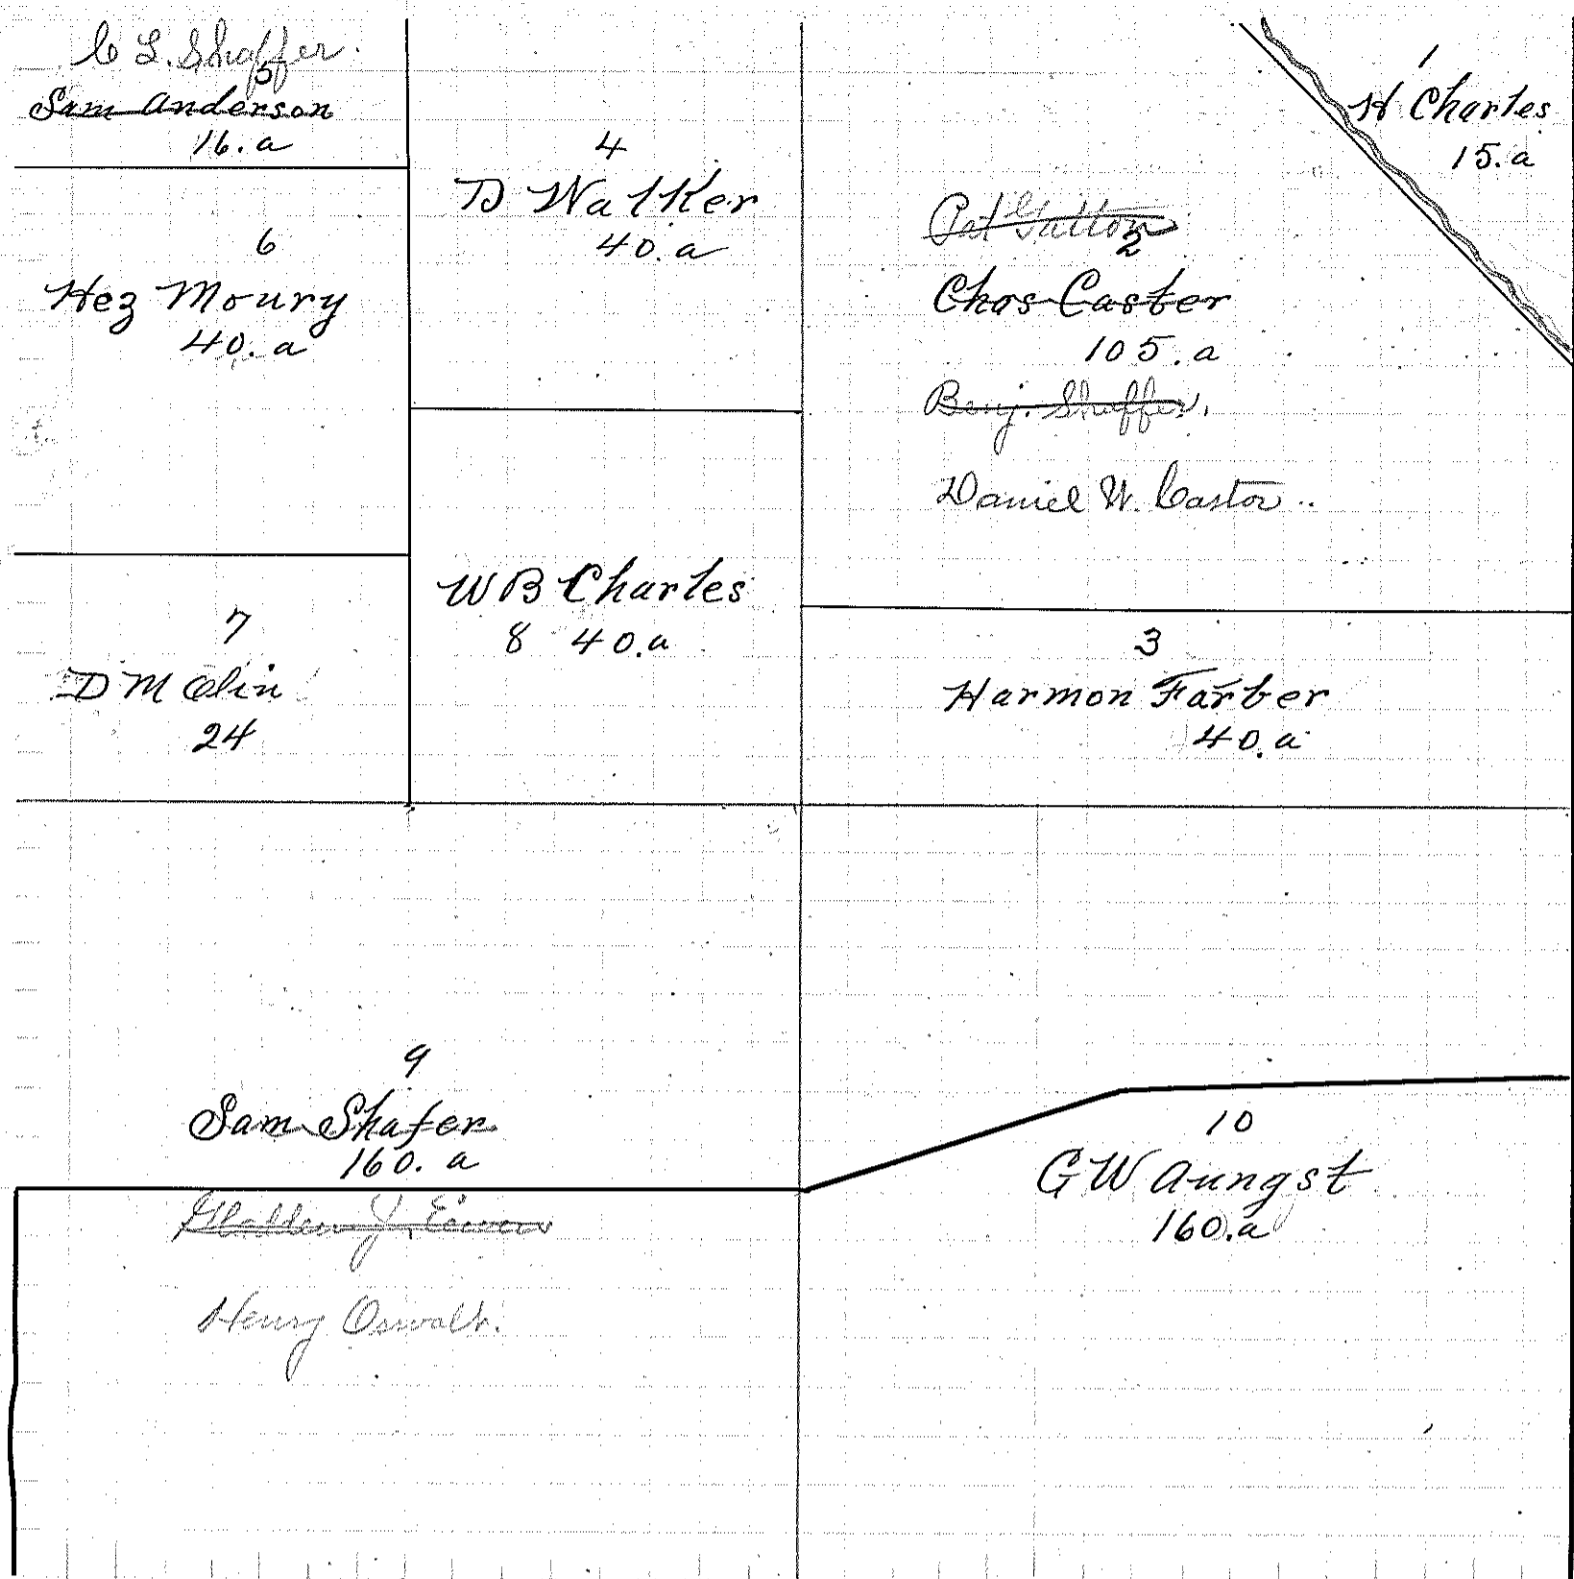 C L. Shaffer.
5
Sam Anderson
16. a
6
Hez Moury
40. a
7
D M Olin
24
4
D Walker
40. a
W B Charles
8 40. a
1
H Charles
15. a
Pat
2
Chas Caster
105. a
Benj. Shaffer.
Daniel W. Castor
3
Harmon Farber
40. a
9
Sam Shafer
160. a
J.
Henry Oswalt.
10
G W Aungst
160. a